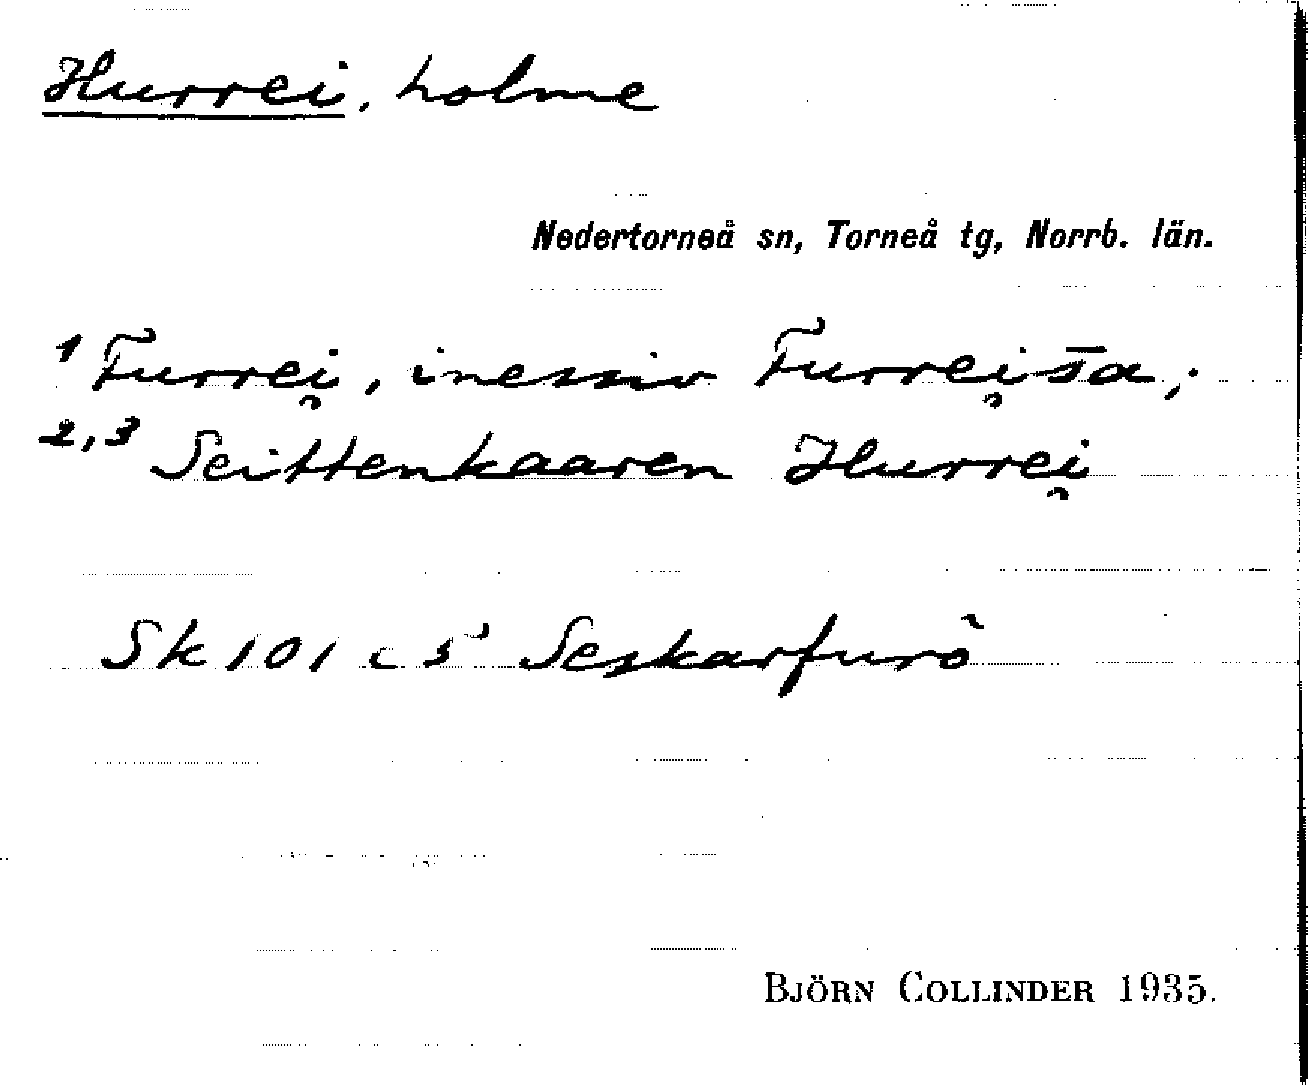 Hurrei, holme
Nedertorneå sn, Torneå tg, Norrb. län.
1 Furrei̯, inessiv Furrei̯s̄a;
2,3 Seittenkaaren Hurrei̯
Sk 101 c 5 Seskarfurö
BJÖRN COLLINDER 1935.